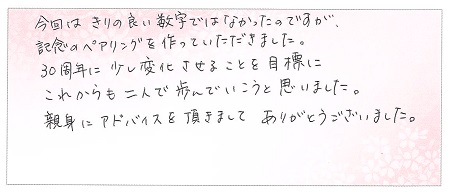 今回は きりの良い数字ではなかったのですが、
記念のペアリングを作っていただきました。
30周年に少し変化させることを目標に
これからも二人で歩んでいこうと思いました。
親身にアドバイスを頂きまして ありがとうございました。